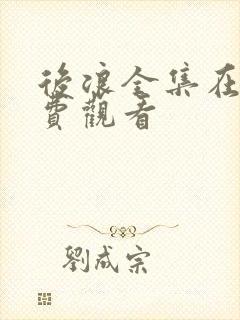 後浪全集在
費觀看
劉成宗